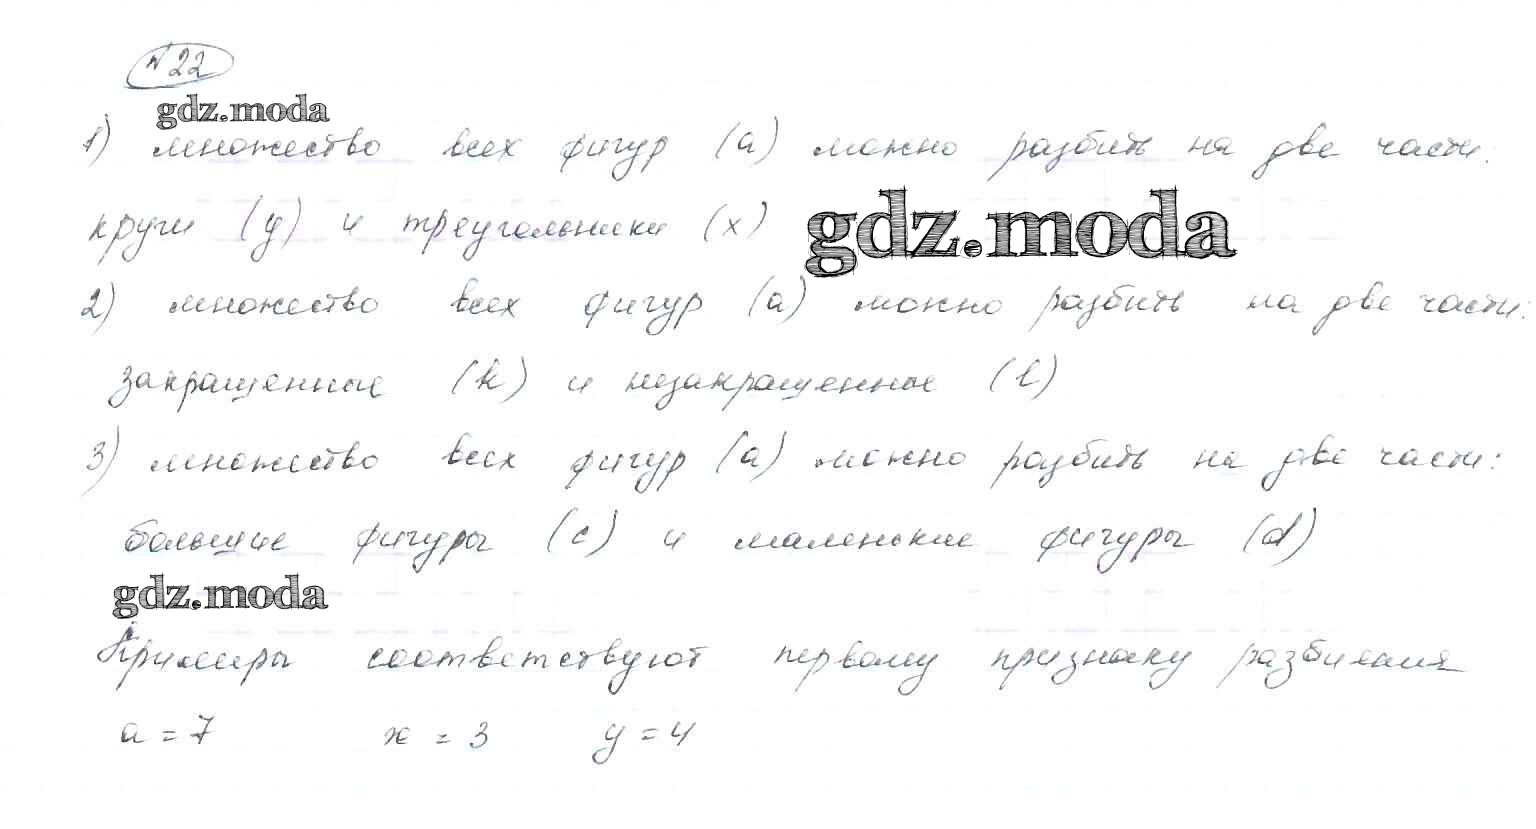 N 22
gdz.moda
1) множество всех фигур (a) можно разбить на две части:
круги (y) и треугольники (x)
gdz.moda
2) множество всех фигур (a) можно разбить на две части:
закращенные (k) и незакращенные (l)
3) множество всех фигур (a) можно разбить на две части:
большие фигуры (c) и маленькие фигуры (d)
gdz.moda
Примеры соответствуют первому признаку разбиения
a = 7 x = 3 y = 4